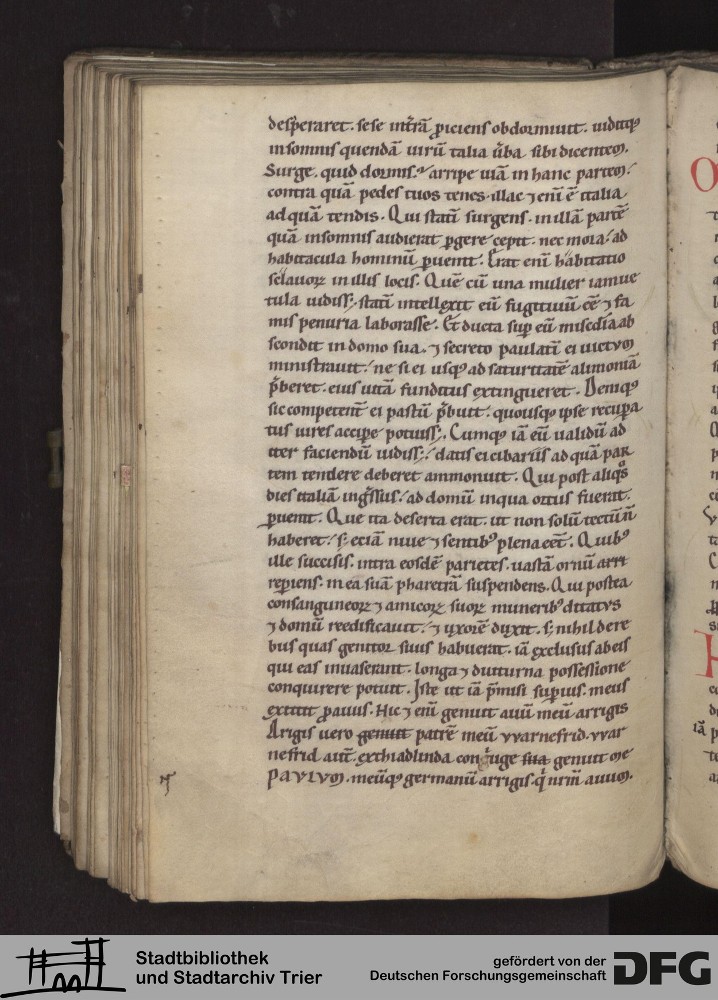 desp̄aret. sese in tr̄rā ꝓiciens obdormiuit. uiditq;
in somnis quendā uirū talia ūba sibi dicentem.
Surge. quid dormis? arripe uiā in hanc partem.
contra quā pedes tuos tenes. illac ⁊ enī ē italia
ad quā tendis. Qui statī surgens. in illā partē
quā in somnis audierat ꝑgere cepit. nec mora ad
habitacula hominū ꝑuenit. Erat enī habitatio
sclauoꝝ in illis locis. Quē cū una mulier iam ue
tula uidiss;. statī intellexit eū fugitiuū eē ⁊ fa
mis penuria laborasse. Et ducta suꝑ eū misc̄dia ab
scondit in domo sua. ⁊ secreto paulatī ei uictum
ministrauit. ne si ei usq; ad saturitatē alimoniā
p̄beret. eius uitā funditus extingueret. Deniq;
sic competent̄ ei pastū p̄buit. quousq; ipse recuꝑa
tus uires accipe potuiss;. Cumq; iā eū ualidū ad
iter faciendū uidiss;. datis ei cibariis ad quā par
tem tendere deberet ammonuit. Qui post aliq̊s
dies italiā ingr̄ssus. ad domū in qua ortus fuerat.
ꝑuenit. Que ita deserta erat. ut non solū tectū n̄
haberet. s; eciā niue ⁊ sentib; plena eēt. Quib;
ille succisis. intra eosdē parietes. uastā ornū arri
reꝑiens. in ea suā pharetrā suspendens. Qui postea
consanguineoꝝ ⁊ amicoꝝ suoꝝ munerib; ditatus
⁊ domū reedificauit. ⁊ uxorē duxit. s; nihil de re
bus quas genitor suus habuerat. iā exclusus ab eis
qui eas inuaserant. longa ⁊ diuturna possessione
conquirere potuit. Iste ut iā p̄misi suꝑius. meus
extitit ꝓauus. Hic ⁊ enī genuit auū meū arrigis
Arigis uero genuit patrē meū vvarnefrid. vvar
nefrid aut̄. ex thiadlinda coniuge sua genuit me
PAVLVM. meūq; germanū arrigis. q̇ nr̄m auum.
Stadtbibliothek
und Stadtarchiv Trier
gefördert von der
Deutschen Forschungsgemeinschaft
DFG